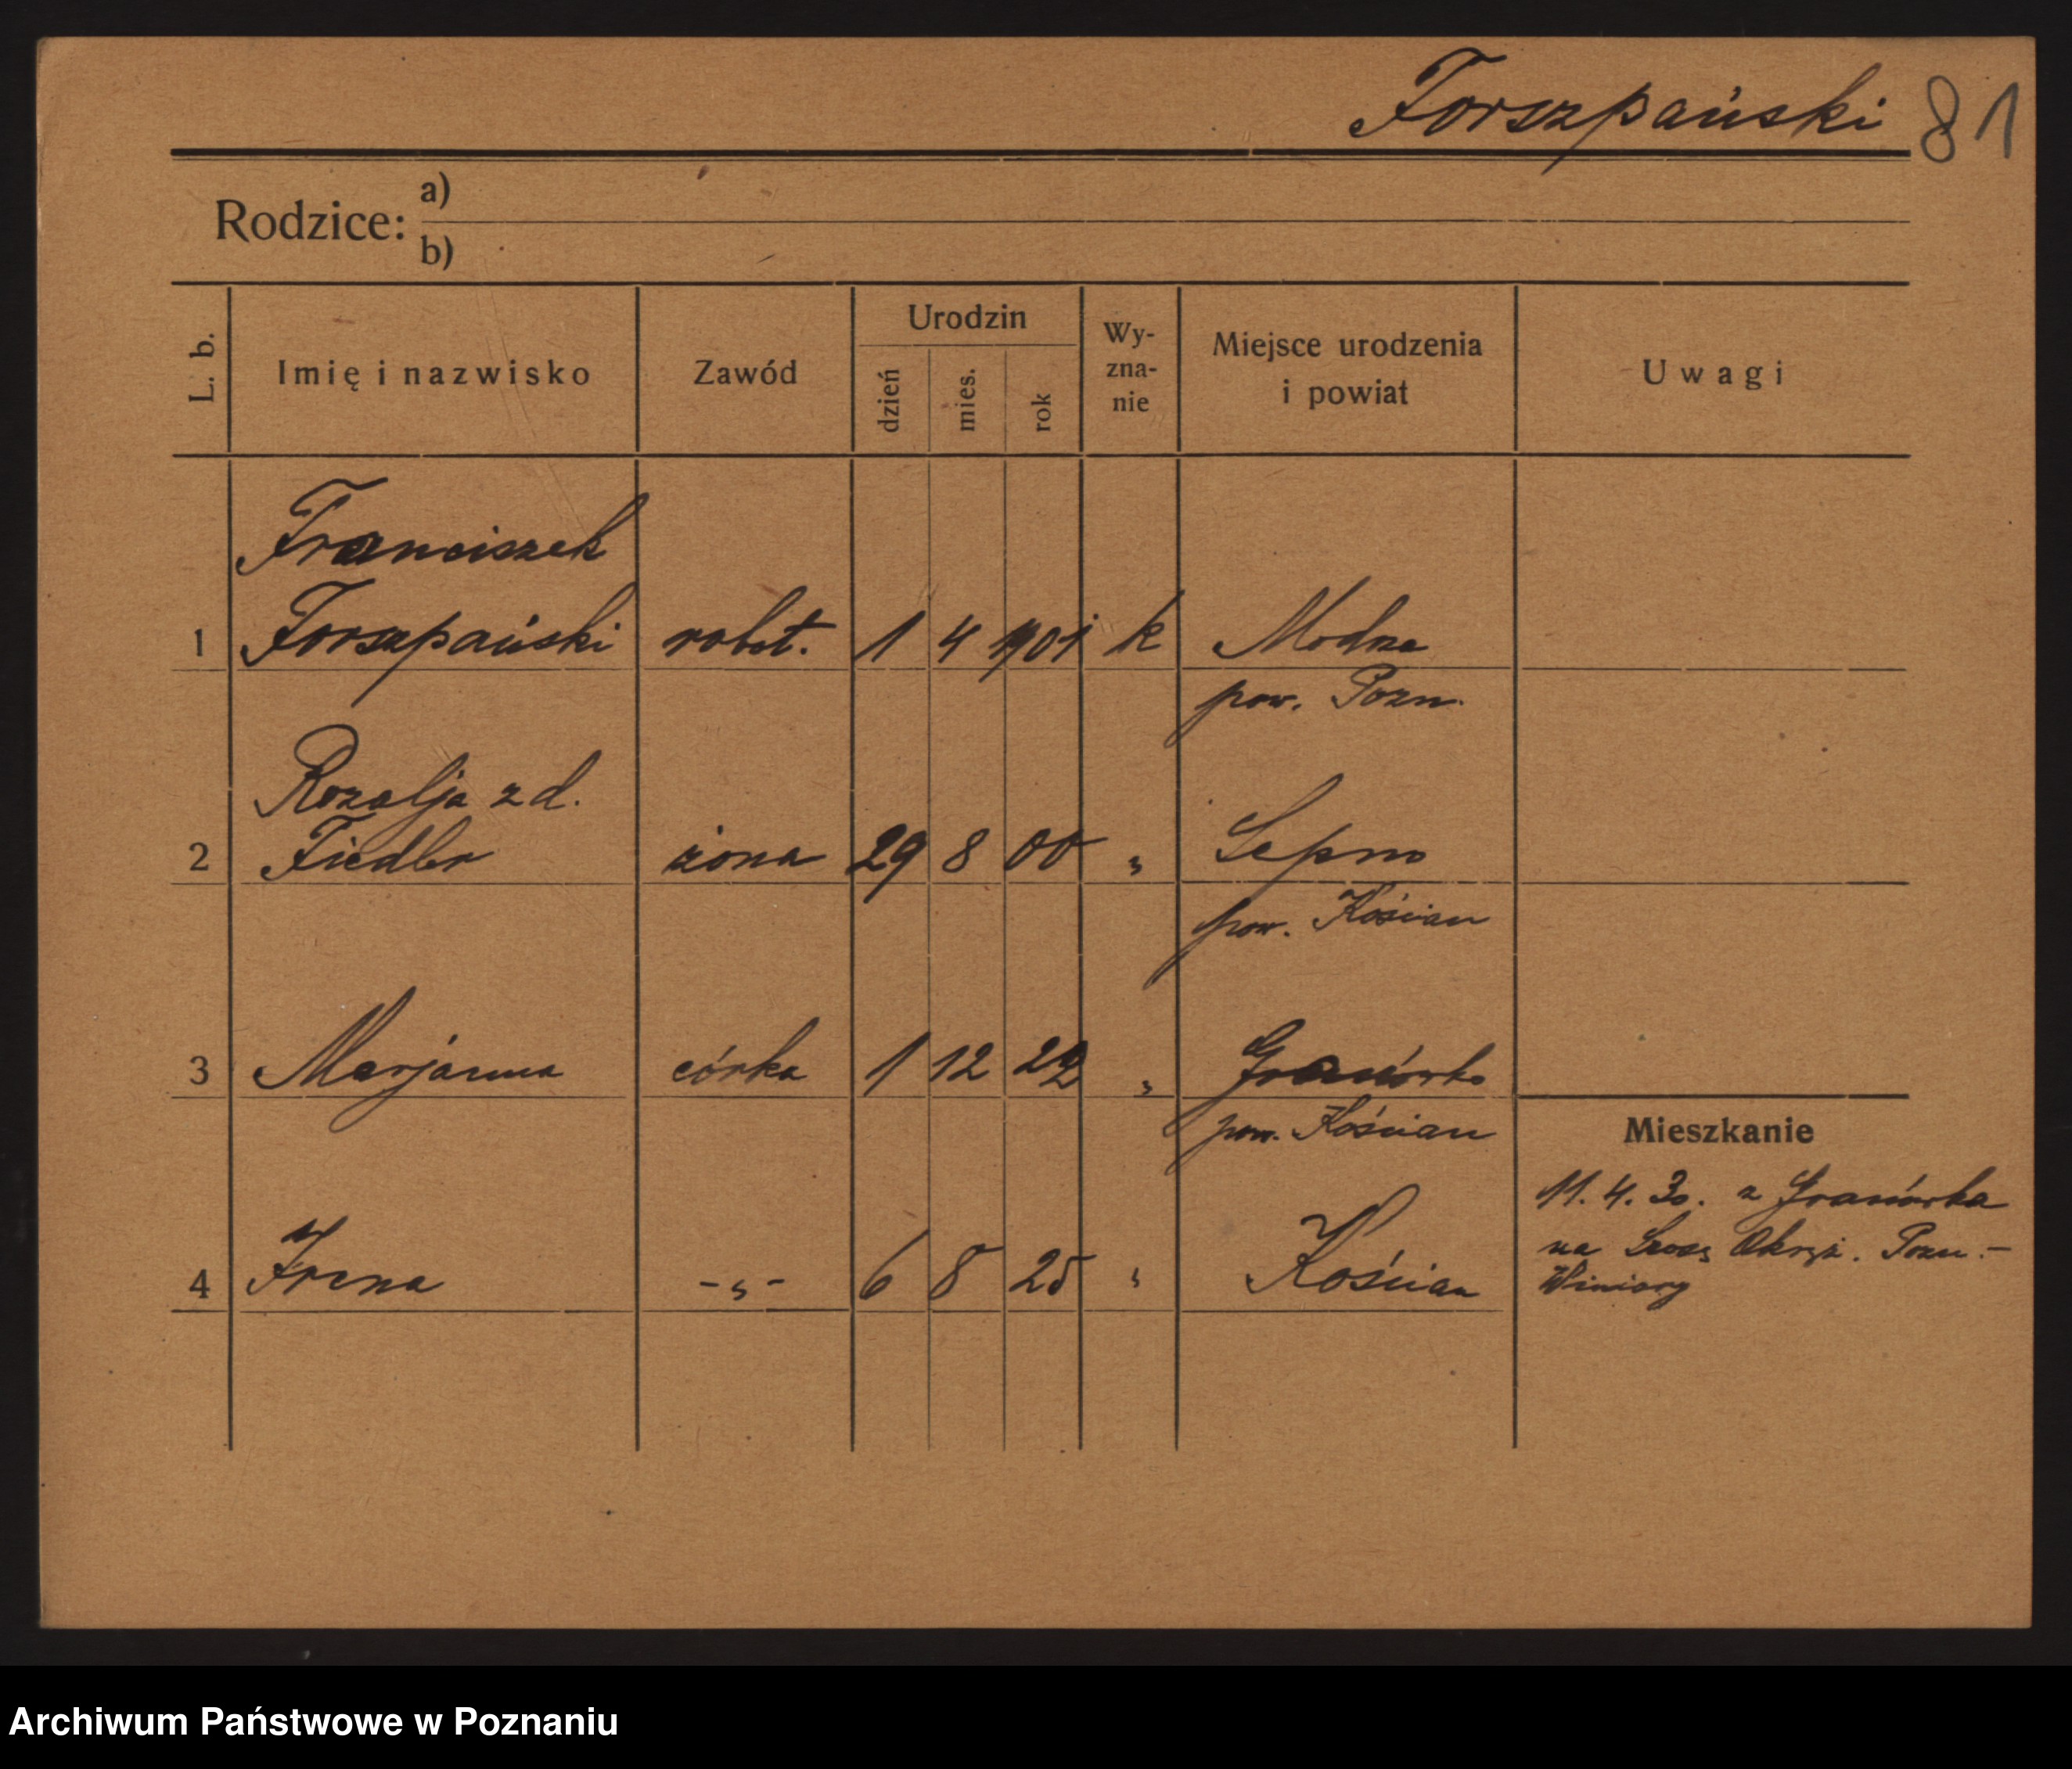 Forszpański 81
Rodzice: a)
b)
L. b.
Imię i nazwisko
Zawód
Urodzin
dzień
mies.
rok
Wy-
zna-
nie
Miejsce urodzenia
i powiat
Uwagi
Franciszek
1 Forszpański robot. 1 4 1901 k Modrze
pow. Pozn.
Rozalja z d.
2 Fiedler żona 29 8 00 " Sepno
pow. Kościan
3 Marjanna córka 1 12 22 " Granówko
pow. Kościan
Mieszkanie
11. 4. 30. z Granówka
na Szosę Okręż. Pozn.-
Winiary
4 Irena -"- 6 8 25 " Kościan
Archiwum Państwowe w Poznaniu